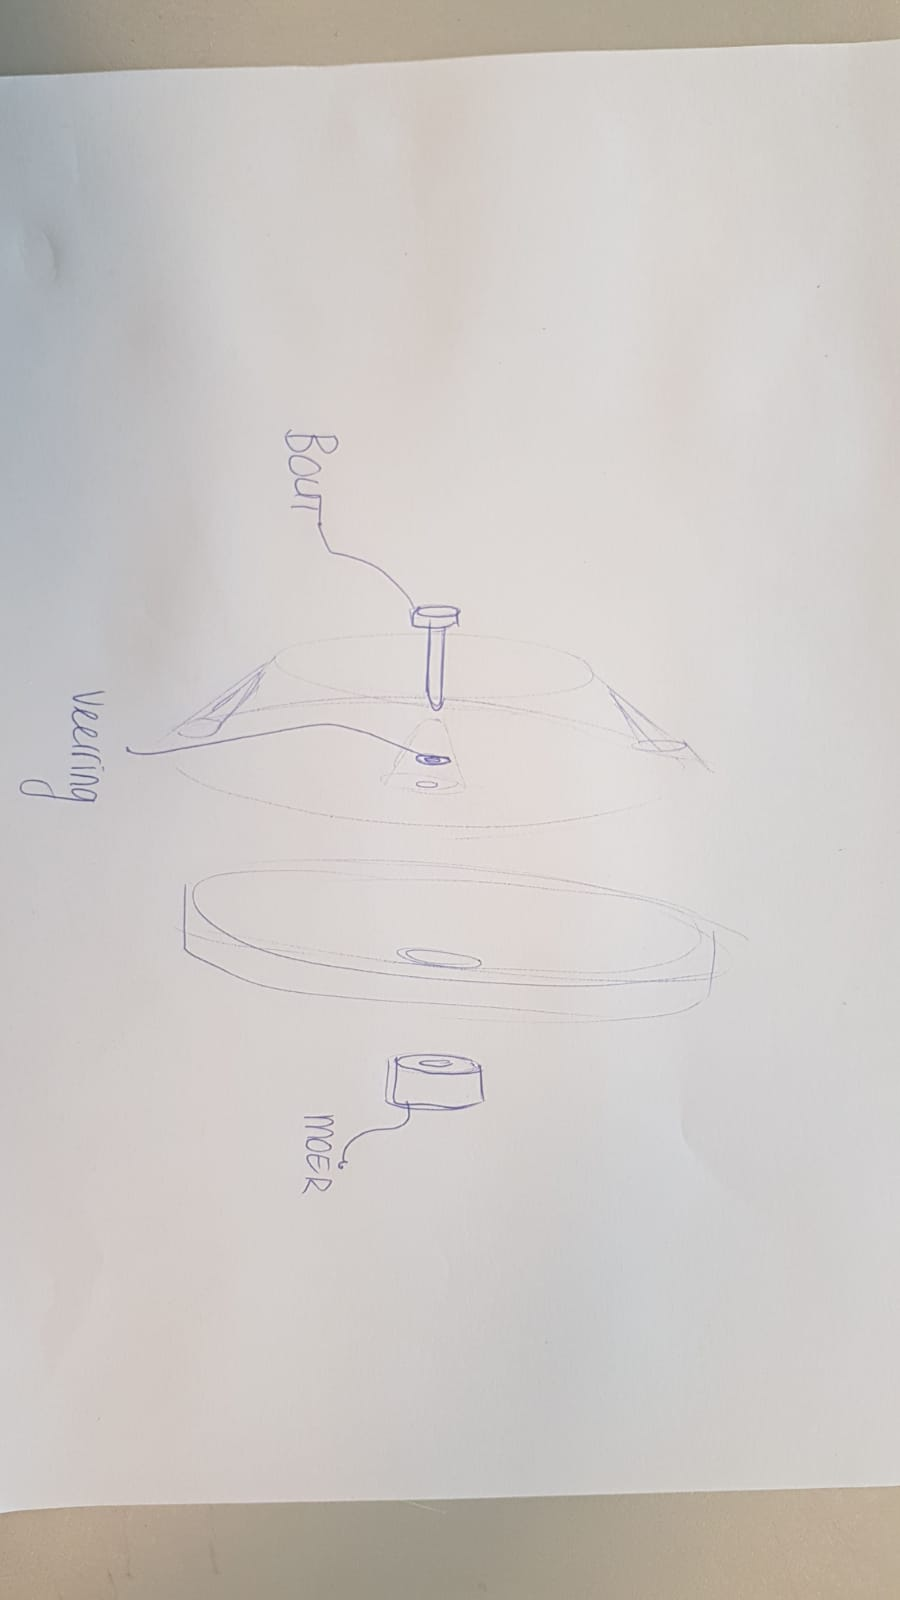 Bout
Veerring
MOER